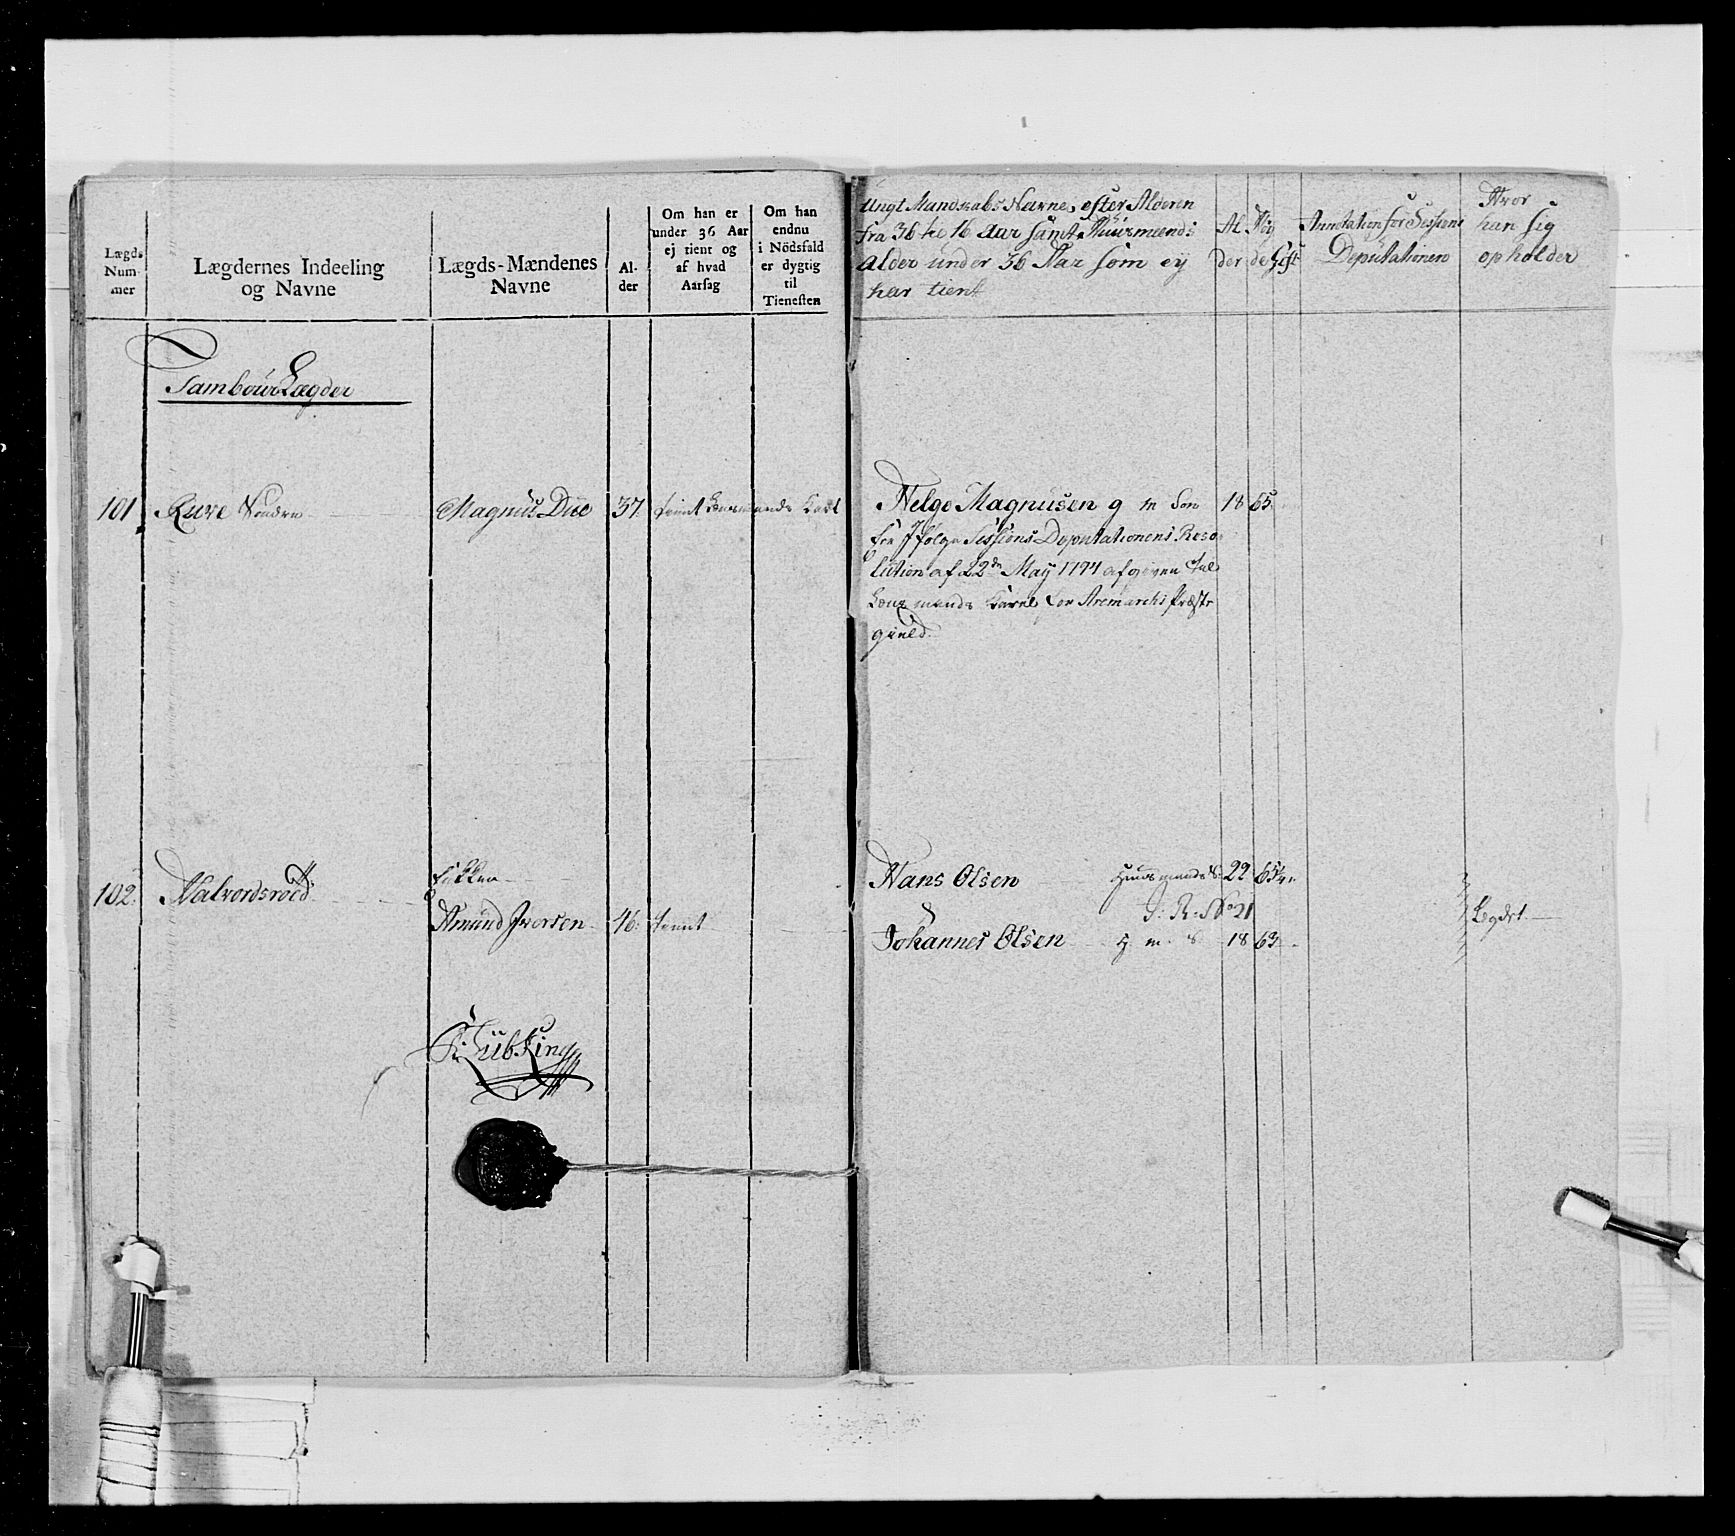 Lægds Num- mer
Lægdernes Indeeling og Navne
Lægds-Mændenes Navne
Al- der
Om han er under 36 Aar ej tient og af hvad Aarsag
Om han endnu i Nödsfald er dygtig til Tienesten
Ungt Mandskabs Navne, efter Alderen
fra 36 til 16 Aar samt Huusmænds
Alder under 36 Aar som ey
har tient
Al der
Høy de
Gift
Annotation for Sessions Deputationen
Hvor han sig opholder
Tambour Lægder
101 Ruve Søndre Magnus Due 37
Helge Magnusen g m Søn 18 65
Ifølge Sessions Deputationens Reso-
lution af 22de May 1794 afgiven til
for Aremarchs Præste
gield.
102. Halvordsrød Enken
Amund Iversen 46. tient
Hans Olsen Huusmands S. 22 65¼
S: R: No 21
Johannes Olsen H m S 18 63
Bygdet